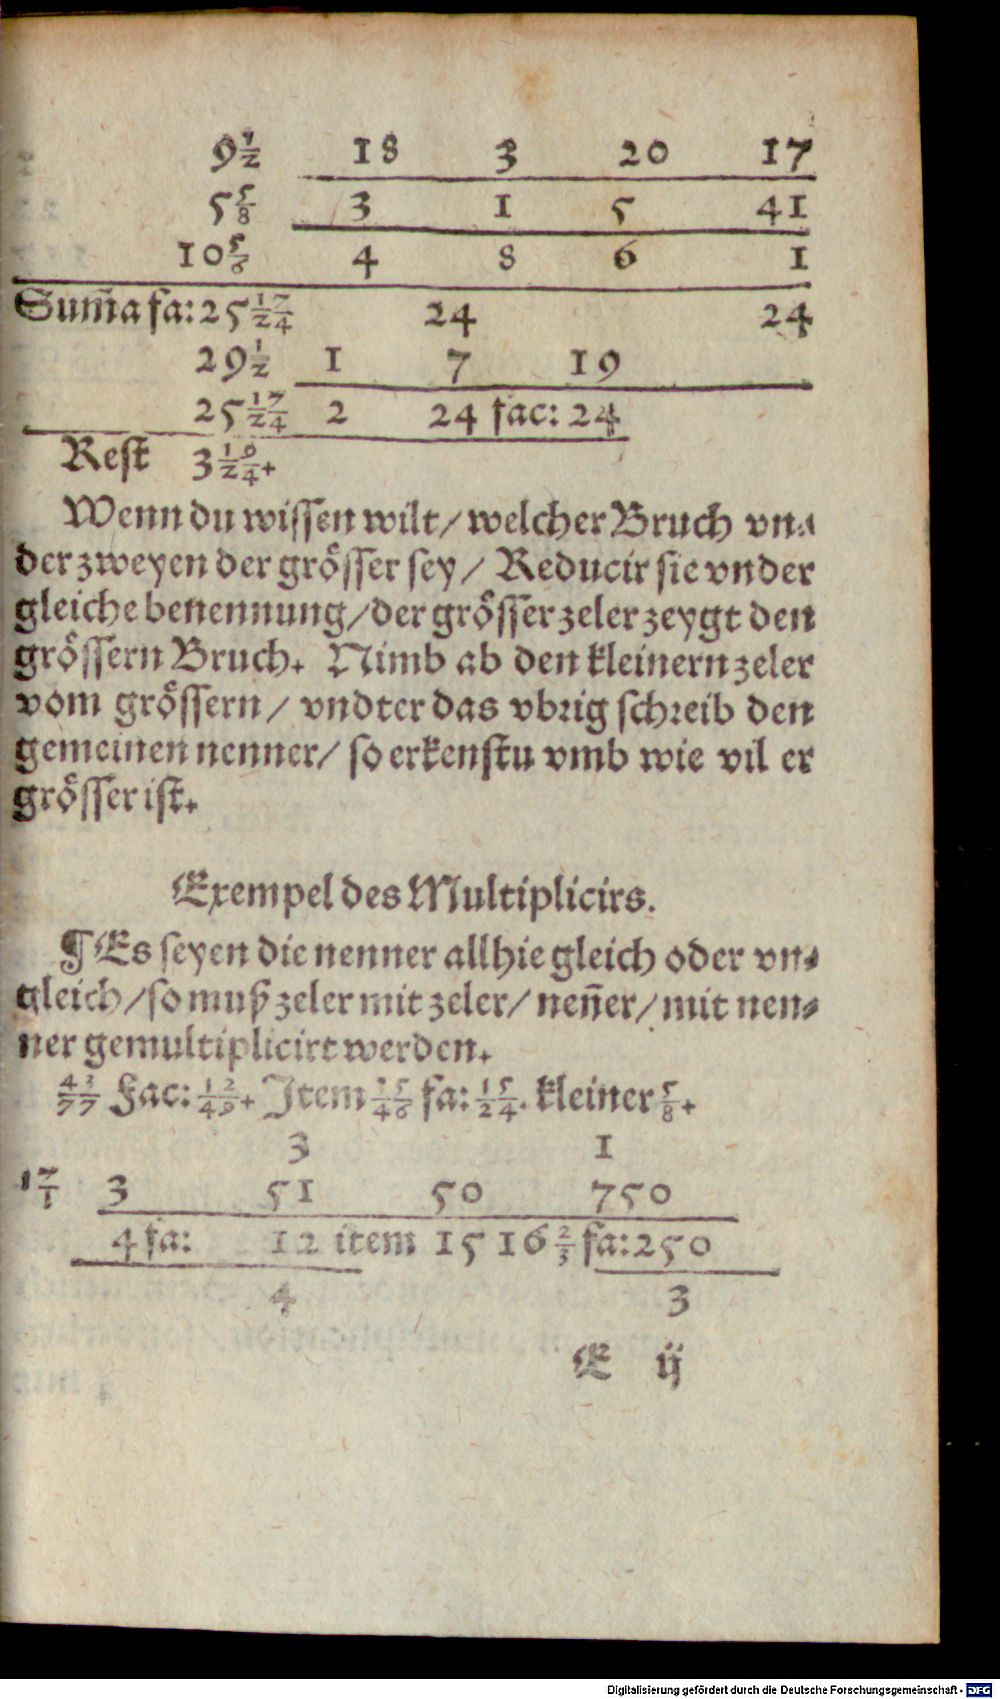 9 1/2 18 3 20 17
5 5/8 3 1 5 41
10 5/6 4 8 6 1
Sum̃a fa: 25 17/24 24 24
29 1/2 1 7 19
25 17/24 2 24 fac: 24
Rest 3 19/24.
Wenn du wissen wilt/ welcher Bruch vn⸗
der zweyen der grösser sey/ Reducir sie vnder
gleiche benennung/ der grösser zeler zeygt den
grössern Bruch. Nimb ab den kleinern zeler
vom grössern/ vndter das vbrig schreib den
gemeinen nenner/ so erkenstu vmb wie vil er
grösser ist.
Exempel des Multiplicirs.
¶Es seyen die nenner allhie gleich oder vn⸗
gleich/ so muß zeler mit zeler/ nen̄er/ mit nen⸗
ner gemultiplicirt werden.
4/7 3/7 Fac: 12/49. Item 3/4 5/6 fa: 15/24. kleiner 5/8.
3 1
17/1 3 51 50 750
4 fa: 12 item 15 16 2/3 fa: 250
4 3
E ij
Digitalisierung gefördert durch die Deutsche Forschungsgemeinschaft - DFG